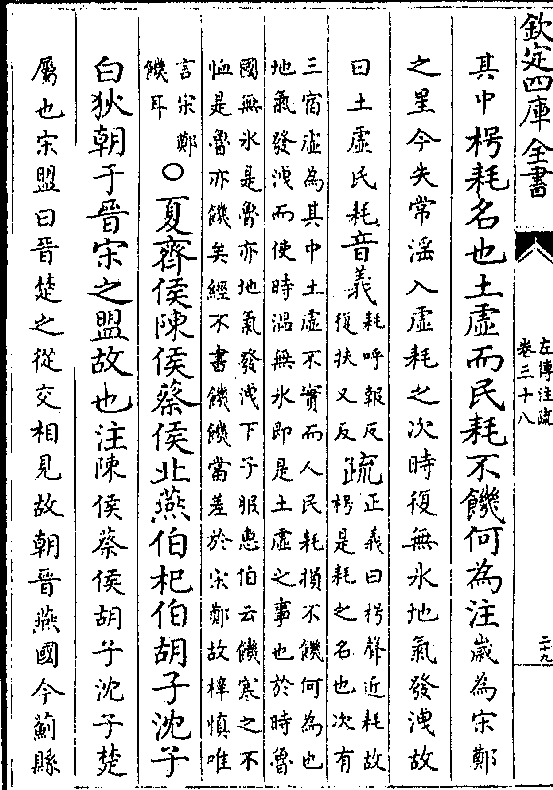 欽定四庫全書
左傳注疏
卷三十八
二十九
其中枵耗名也土虛而民耗不饑何為注歲為宋鄭
之星今失常淫入虛耗之次時復無氷地氣發洩故
曰土虛民耗音義耗呼報反
復扶又反疏正義曰枵聲近耗故
枵是耗之名也次有
三宿虛為其中土虛不實而人民耗損不饑何為也
地氣發洩而使時溫無氷即是土虛之事也於時魯
國無氷是魯亦地氣發洩下子服惠伯云饑寒之不
恤是魯亦饑矣經不書饑饑當差於宋鄭故梓慎唯
言宋鄭
饑耳○夏齊侯陳侯蔡侯北燕伯杞伯胡子沈子
白狄朝于晉宋之盟故也注陳侯蔡侯胡子沈子楚
屬也宋盟曰晉楚之從交相見故朝晉燕國今薊縣